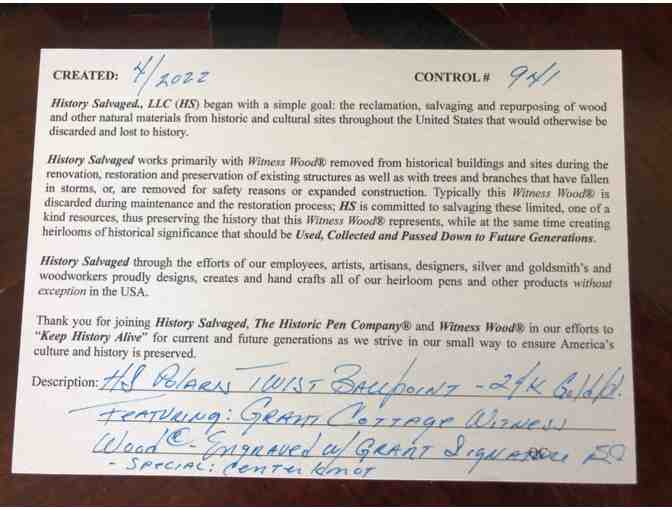 CREATED: 4/2022 CONTROL # 941
History Salvaged., LLC (HS) began with a simple goal: the reclamation, salvaging and repurposing of wood
and other natural materials from historic and cultural sites throughout the United States that would otherwise be
discarded and lost to history.
History Salvaged works primarily with Witness Wood® removed from historical buildings and sites during the
renovation, restoration and preservation of existing structures as well as with trees and branches that have fallen
in storms, or, are removed for safety reasons or expanded construction. Typically this Witness Wood® is
discarded during maintenance and the restoration process; HS is committed to salvaging these limited, one of a
kind resources, thus preserving the history that this Witness Wood® represents, while at the same time creating
heirlooms of historical significance that should be Used, Collected and Passed Down to Future Generations.
History Salvaged through the efforts of our employees, artists, artisans, designers, silver and goldsmith's and
woodworkers proudly designs, creates and hand crafts all of our heirloom pens and other products without
exception in the USA.
Thank you for joining History Salvaged, The Historic Pen Company® and Witness Wood® in our efforts to
“Keep History Alive” for current and future generations as we strive in our small way to ensure America's
culture and history is preserved.
Description: HS Polaris Twist Ballpoint - 24K Gold/
Featuring: Grant Cottage Witness
Wood © - Engraved w/ Grant Signature
- Special: Center Knot